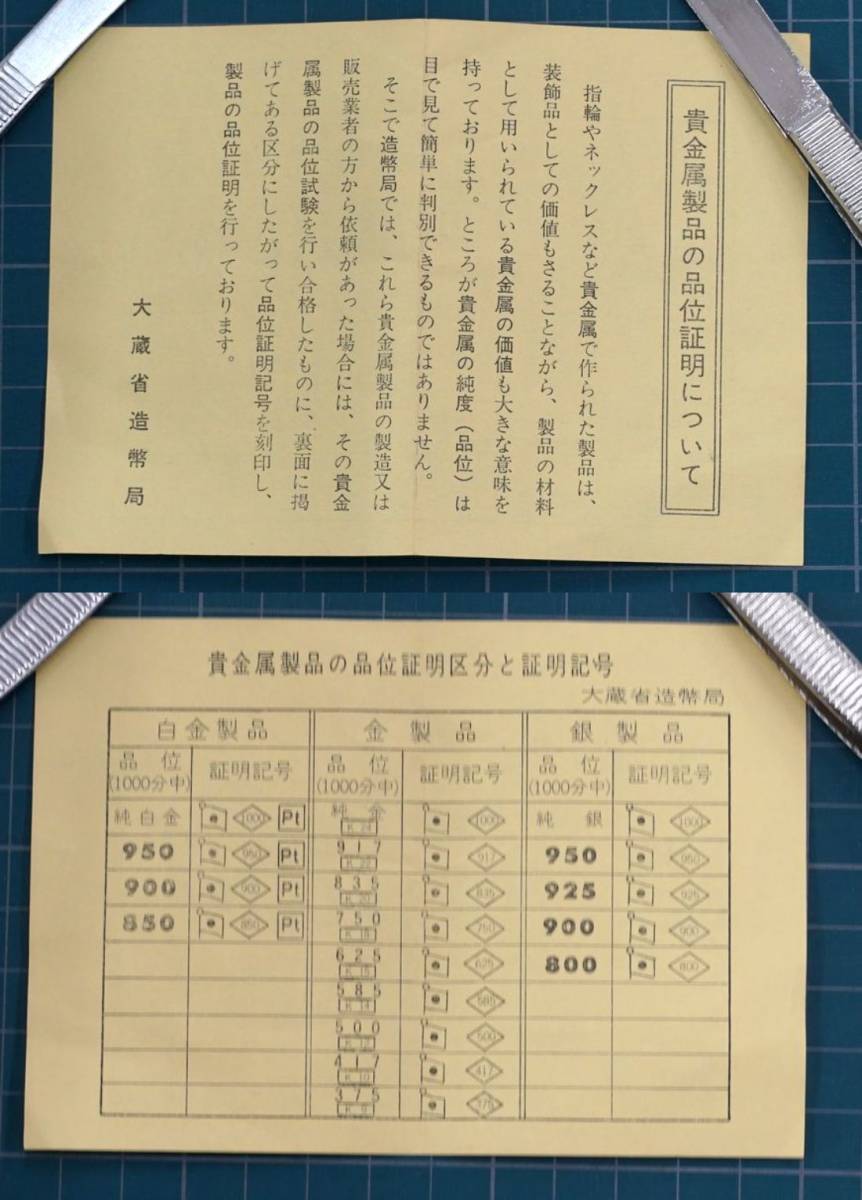 貴金属製品の品位証明について
指輪やネックレスなど貴金属で作られた製品は、
装飾品としての価値もさることながら、製品の材料
として用いられている貴金属の価値も大きな意味を
持っております。ところが貴金属の純度(品位)は
目で見て簡単に判別できるものではありません。
そこで造幣局では、これら貴金属製品の製造又は
販売業者の方から依頼があった場合には、その貴金
属製品の品位試験を行い合格したものに、裏面に掲
げてある区分にしたがって品位証明記号を刻印し、
製品の品位証明を行っております。
大蔵省造幣局
貴金属製品の品位証明区分と証明記号
大蔵省造幣局
白金製品 金製品 銀製品
品位 (1000分中) 証明記号 品位 (1000分中) 証明記号 品位 (1000分中) 証明記号
純白金 1000 Pt 純金 K 24 1000 純銀 1000
950 950 Pt 917 K 22 917 950 950
900 900 Pt 835 K 20 835 925 925
850 850 Pt 750 K 18 750 900 900
625 K 15 625 800 800
585 K 14 585
500 K 12 500
417 K 10 417
375 K 9 375